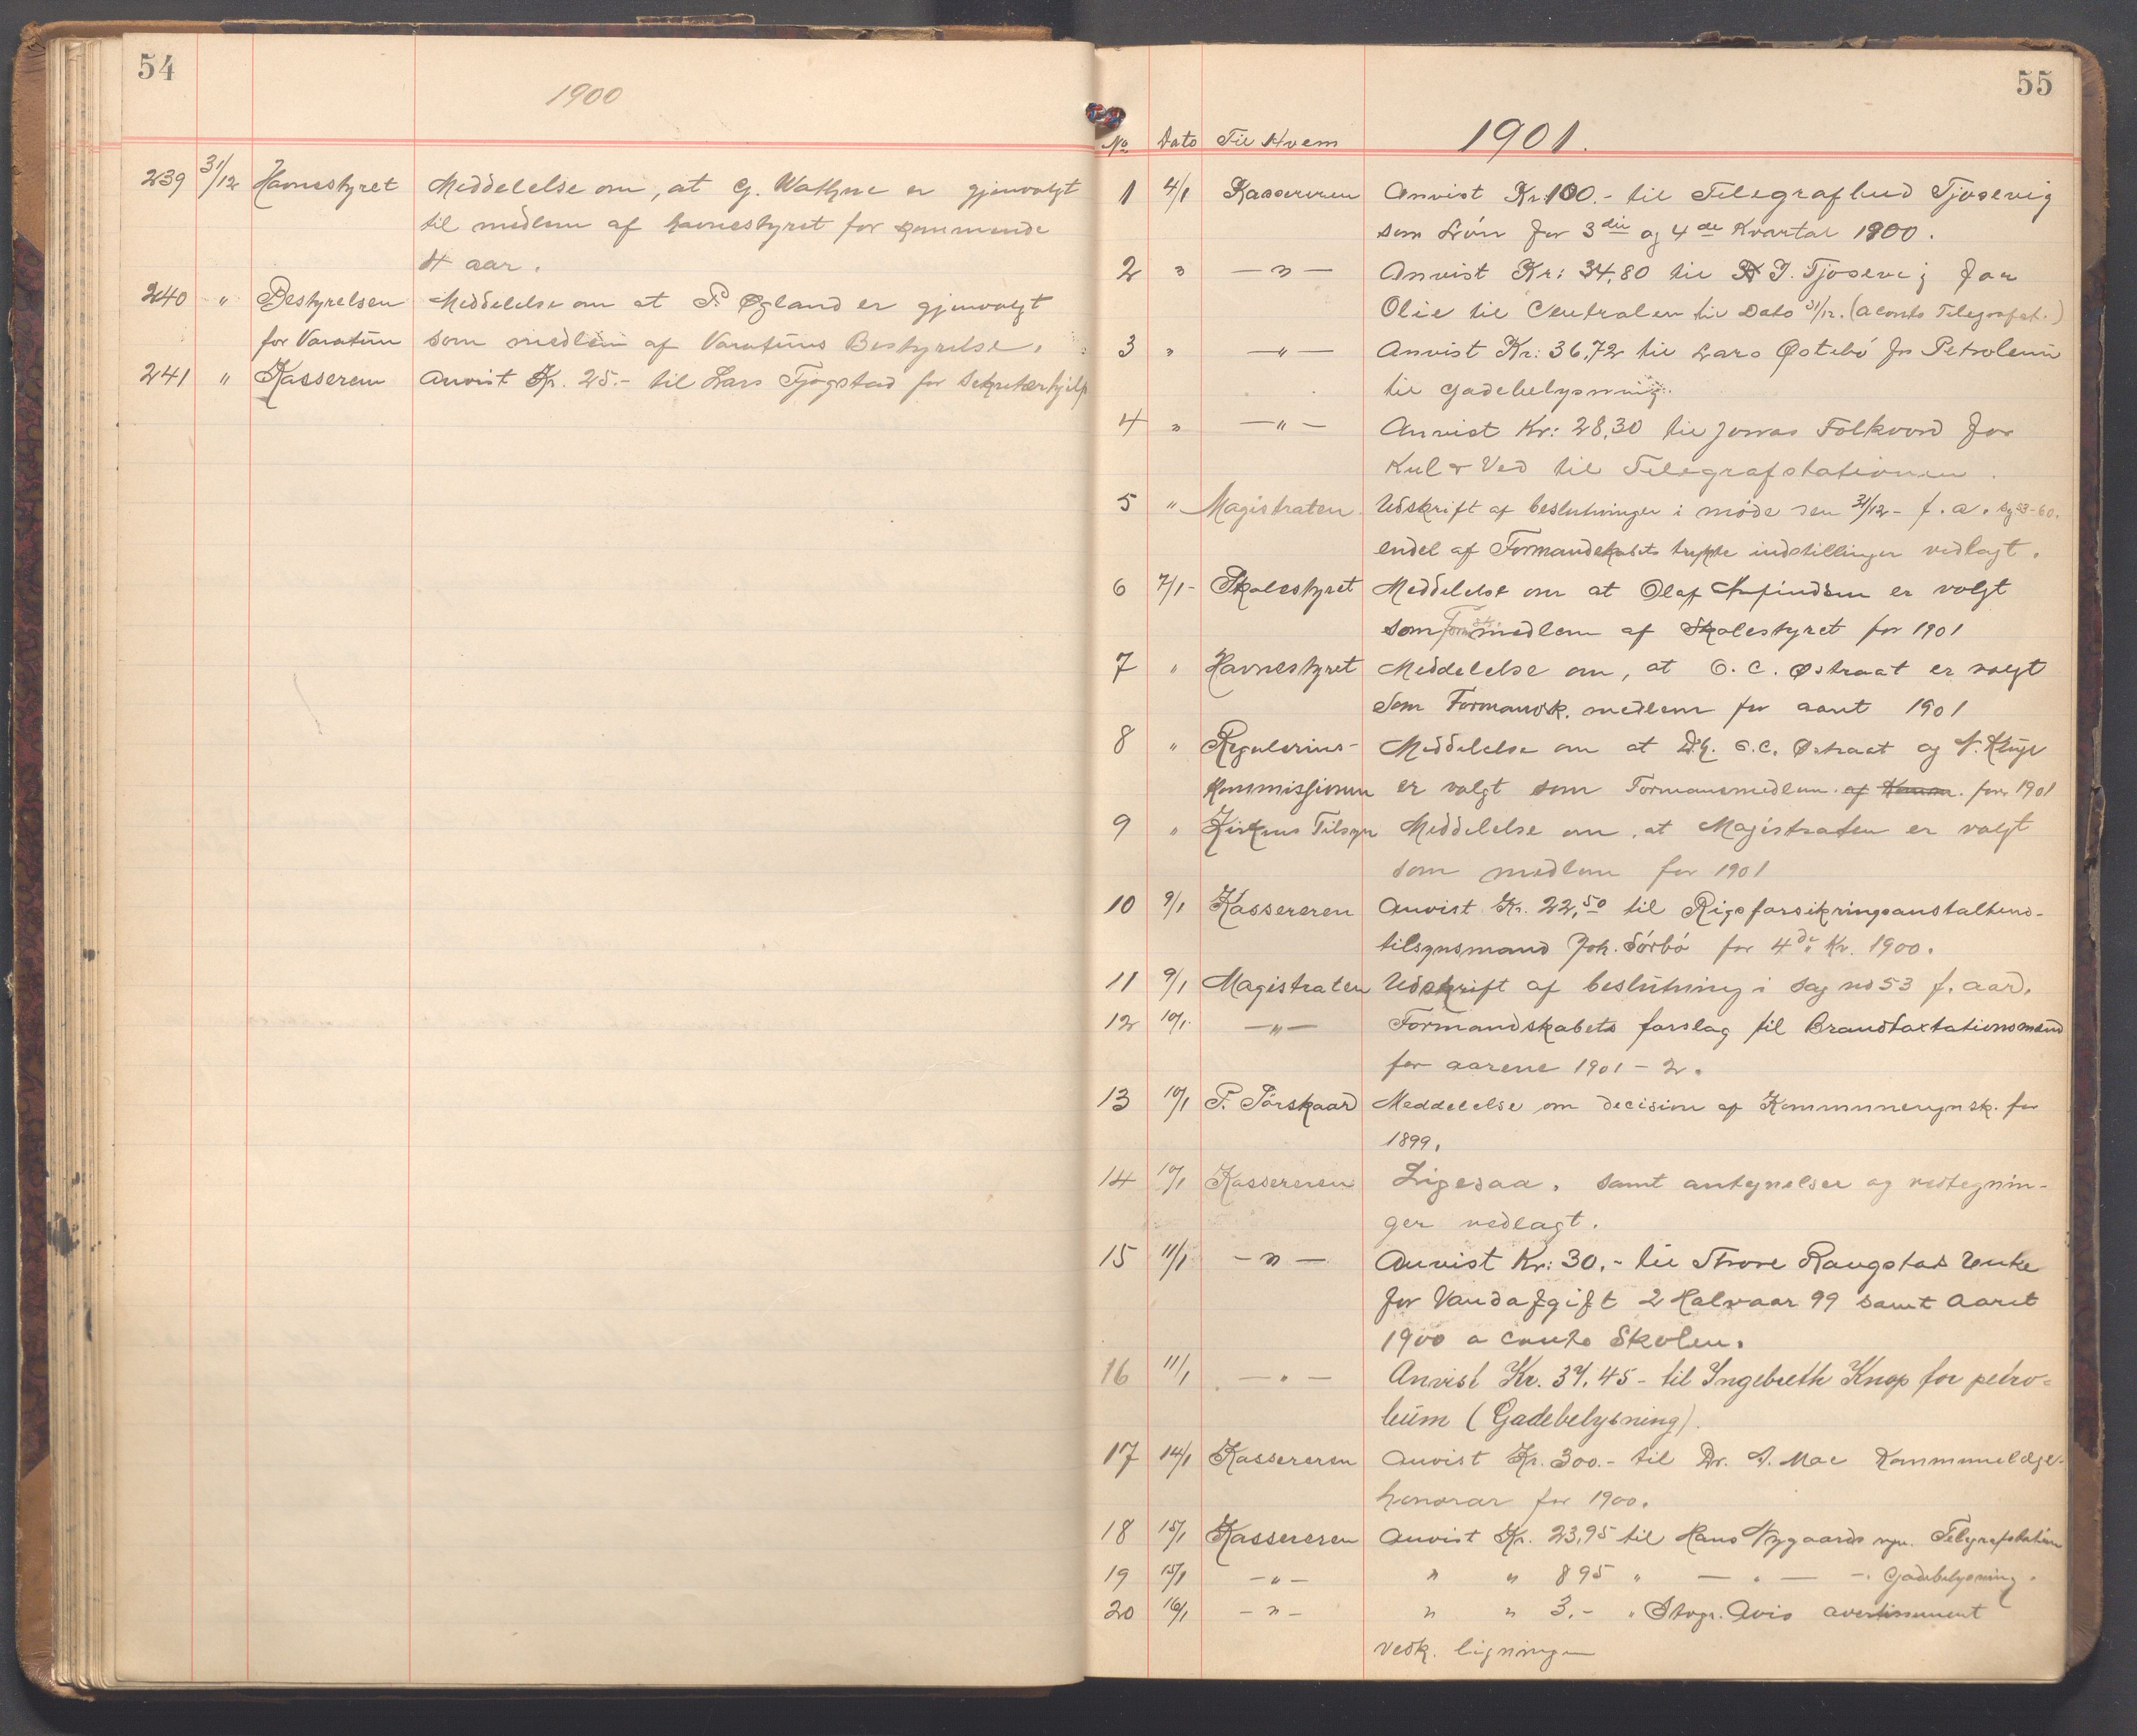 54
1900
239 31/12 Havnestyret Meddelelse om, at G. Wathne er gjenvalgt
til medlem af havnestyret for kommende
4 aar.
240 " Bestyrelsen Meddelelse om at P. Øgland er gjenvalgt
for Varatun som medlem af Varatuns Bestyrelse.
241 " Kasseren Anvist Kr. 25.- til Lars Fjogstad for Sekretærhjelp
55
No Dato Til Hvem 1901.
1 4/1 Kassereren Anvist Kr. 100.- til Telegrafbud Tjosevig
som Løn for 3die og 4de Kvartal 1900.
2 " — " — Anvist Kr: 34,80 til J. Tjosevig for
Olie til Centralen til Dato 31/12. (a conto Telegrafst.)
3 " — " — Anvist Kr: 36,72 til Lars Østebø for Petroleum
til Gadebelysning.
4 " — " — Anvist Kr: 28,30 til Jonas Folkvord for
Kul & Ved til Telegrafstationen.
5 " Magistraten Udskrift af beslutninger i møde den 31/12- f. a. sag 53-60.
endel af Formandskabets trykte indstillinger vedlagt.
6 7/1- Skolestyret Meddelelse om at Olaf Arfindsen er valgt
som Form.sk. medlem af Skolestyret for 1901
7 " Havnestyret Meddelelse om, at O. C. Østraat er valgt
som Formandsk. medlem for aaret 1901
8 " Regulerins- Meddelelse om at D.H. O.C. Østraat og N. Kluge
kommissionen er valgt som Formansmedlem. af Komm. for 1901
9 " Kirkens Tilsyn Meddelelse om, at Magistraten er valgt
som medlem for 1901
10 9/1 Kassereren Anvist Kr. 22,50 til Rigsforsikringsanstaltens-
tilsynsmand Joh. Sørbø for 4de Kv. 1900.
11 9/1 Magistraten Udskrift af beslutning i sag no 53 f. aar.
12 10/1 — " — Formandskabets forslag til Brandtaxtationsmænd
for aarene 1901 - 2.
13 10/1 P. Pørskaard Meddelelse om decision af Kommuneregnsk. for
1899.
14 10/1 Kassereren Ligesaa, samt antegnelser og vedtegnin-
ger vedlagt.
15 11/1 — " — Anvist Kr: 30.- til Thore Raugstads Enke
for Vandafgift 2 Halvaar 99 samt Aaret
1900 a conto Skolen.
16 11/1 — " — Anvist Kr. 37,45 - til Ingebreth Knop for petro=
leum (Gadebelysning).
17 14/1 Kassereren Anvist Kr. 300.- til Dr. A. Mae Kommunelæge-
honorar for 1900.
18 15/1 Kassereren Anvist Kr. 23,95 til Hans Nygaards regn. Telegrafstation
19 15/1 — " — " " 8 95 " — " — -. Gadebelysning.
20 16/1 — " — " " 3,- " Stvgr. Avis avertissement
vedk. ligningen